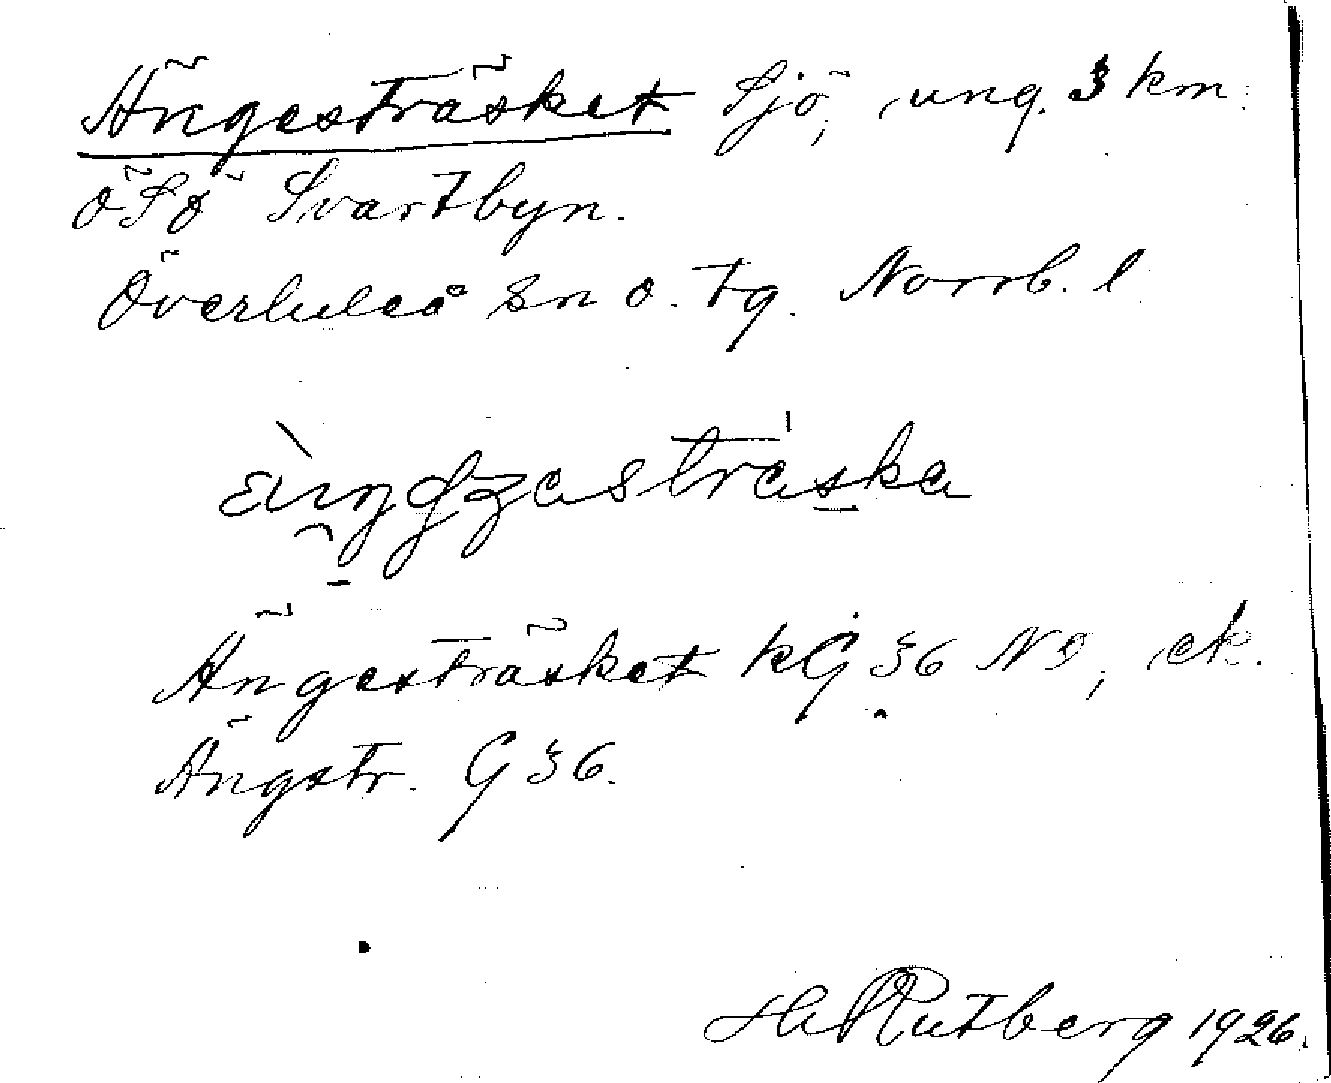 Ängesträsket Sjö, ung. 3 km.
ÖSÖ Svartbyn.
Överluleå sn o. tg. Norrb. l
Ängesträsket kG 36 NO, ek.
Ängstr. G 36.
H. Rutberg 1926.